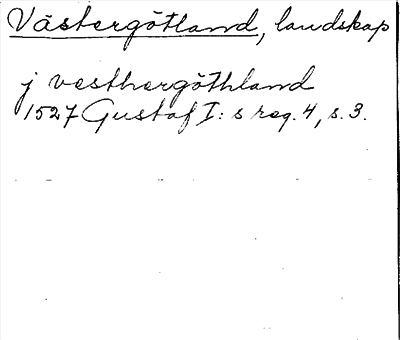 Västergötland, landskap
j vesthergöthland
1527 Gustaf I:s reg. 4, s. 3.